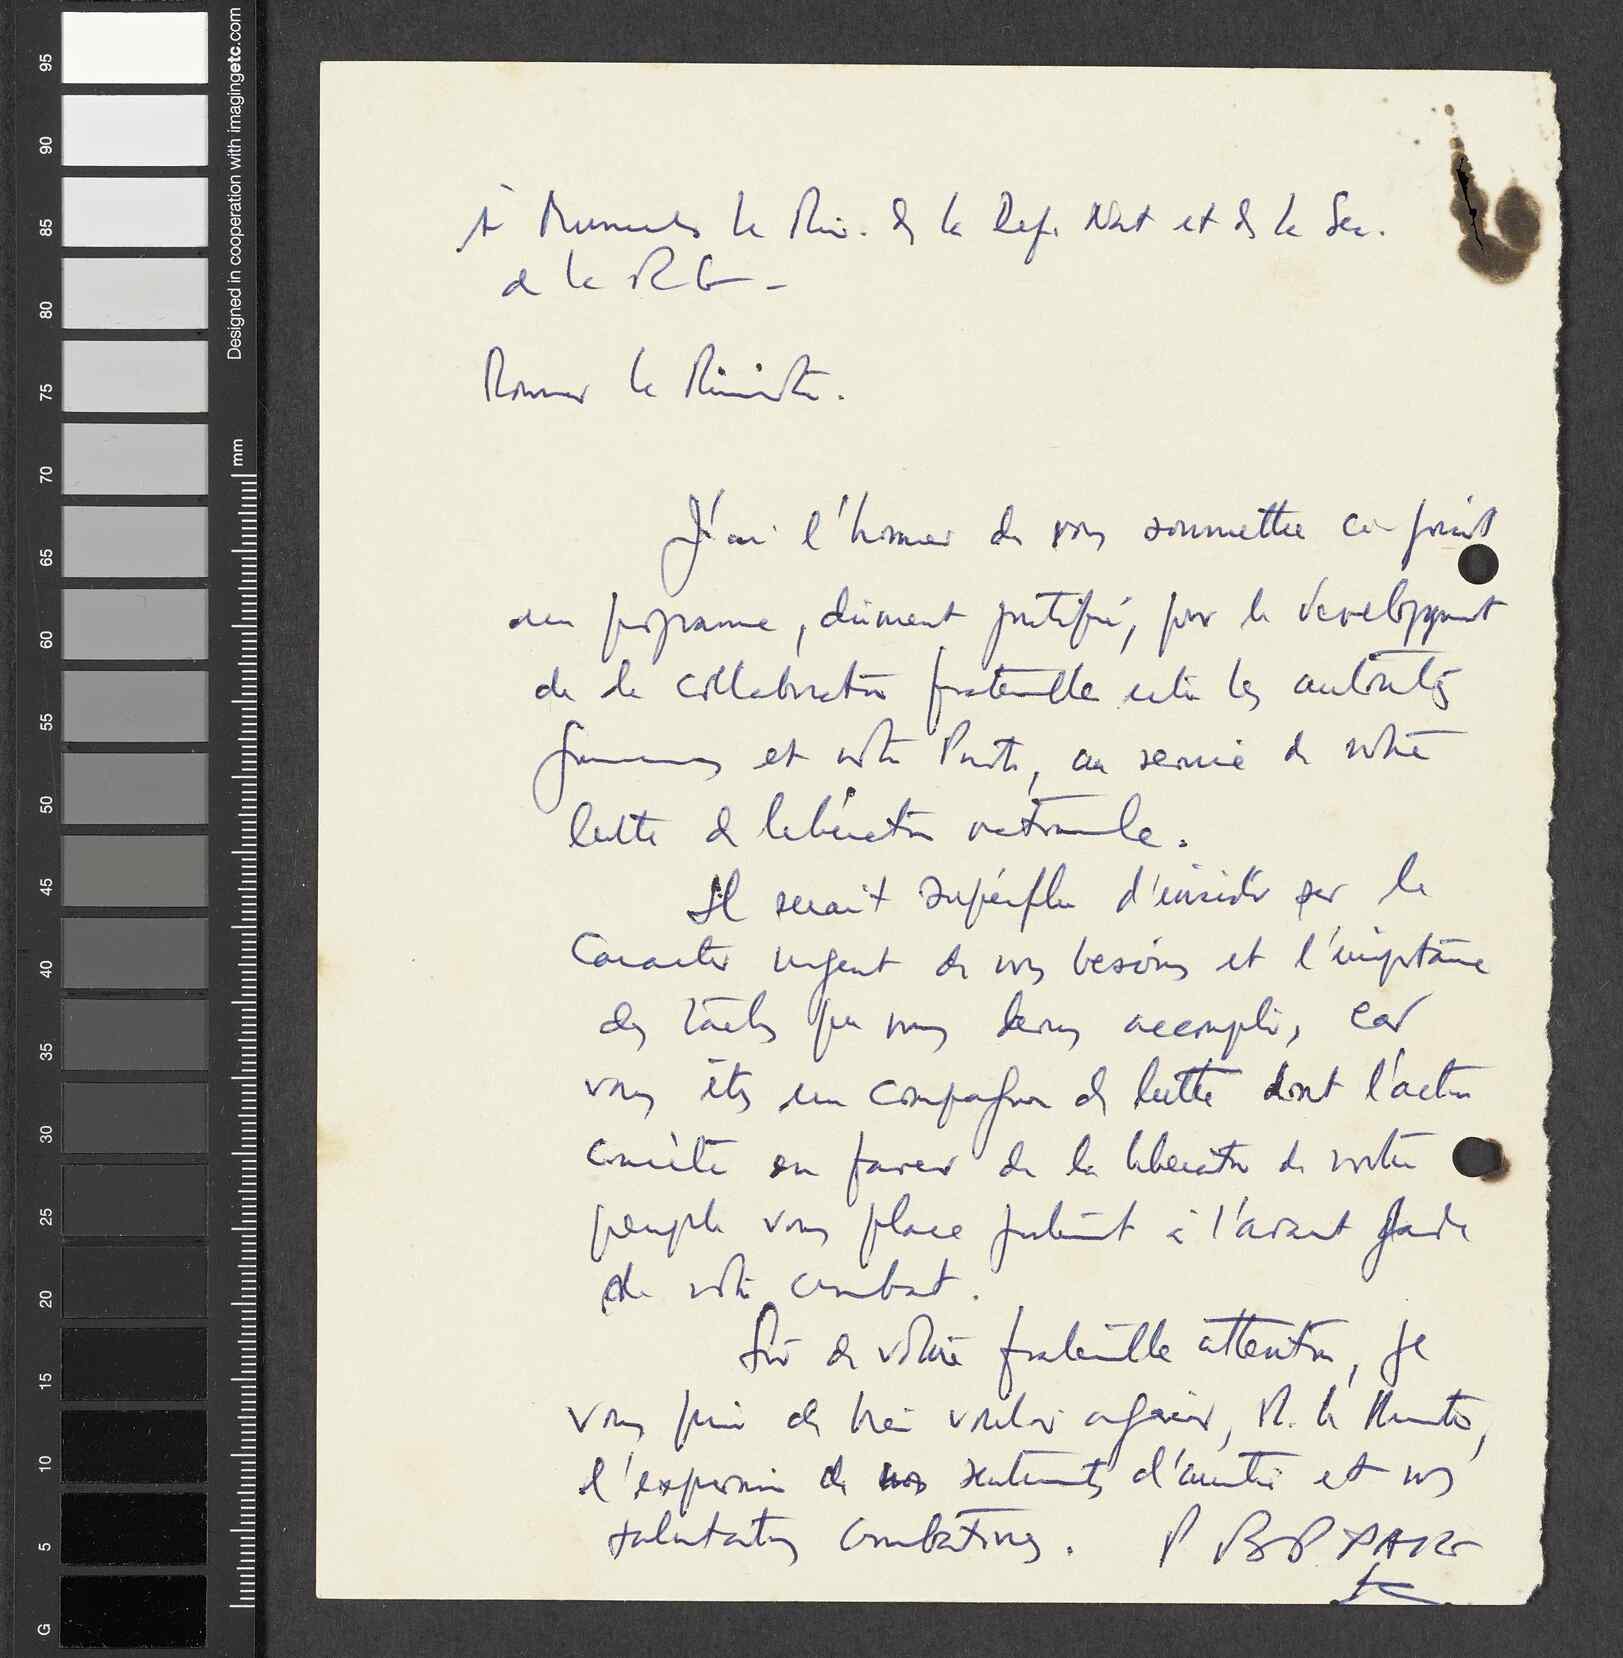 À Monsieur le Min. de la Def. Nat et de la Sec.
de la RG -
Monsieur le Ministre.
J'ai l'honneur de vous soumettre ci-joint
un programme, dûment justifié, pour le développement
de la collaboration fraternelle entre les autorités
guinéennes et notre Parti, au service de notre
lutte de libération nationale.
Il serait superflu d'insister sur le
caractère urgent de nos besoins et l'importance
des tâches que nous devons accomplir, car
vous êtes un compagnon de lutte dont l'action
concrète en faveur de la libération de notre
peuple vous place justement à l'avant garde
de notre combat.
Sûr de votre fraternelle attention, je
vous prie de bien vouloir agréer, M. le Ministre,
l'expression de nos sentiments d'amitié et nos
salutations combatives. P BP PAIG
95
90
85
80
75
70
65
60
55
50
45
40
35
30
25
20
15
10
5
G
mm
Designed in cooperation with imagingetc.com